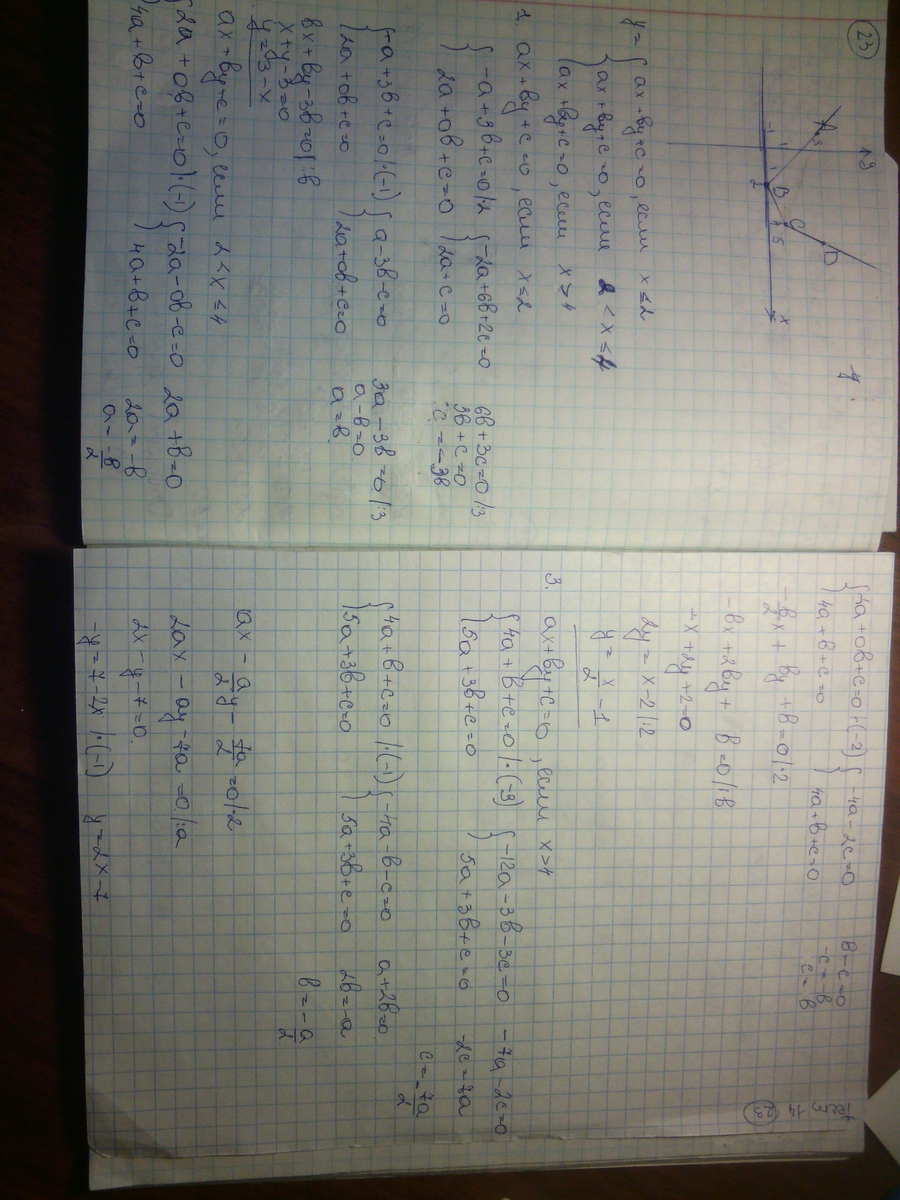 23
y
A
3
-1
1
B
2
C
4
5
D
x
y=
{ ax+by+c=0, если x≤2
{ ax+by+c=0, если 2<x≤4
{ ax+by+c=0, если x>4
1. ax+by+c=0, если x≤2
{ -a+3b+c=0|·2 { -2a+6b+2c=0 6b+3c=0|:3
{ 2a+0b+c=0 { 2a+c=0 3b+c=0
c=-3b
{ -a+3b+c=0|·(-1) { a-3b-c=0 3a-3b=0|:3
{ 2a+0b+c=0 { 2a+0b+c=0 a-b=0
a=b
bx+by-3b=0|:b
x+y-3=0
y=3-x
ax+by+c=0, если 2<x≤4
{ 2a+0b+c=0|·(-1) { -2a-0b-c=0 2a+b=0
{ 4a+b+c=0 { 4a+b+c=0 2a=-b
a=-b/2
{ 2a+0b+c=0|·(-2) { -4a-2c=0 b-c=0
{ 4a+b+c=0 { 4a+b+c=0 -c=-b
c=b
-b/2x+by+b=0|·2
-bx+2by+b=0|:b
-x+2y+2=0
2y=x-2|:2
y=x/2-1
3. ax+by+c=0, если x>4
{ 4a+b+c=0|·(-3) { -12a-3b-3c=0 -7a-2c=0
{ 5a+3b+c=0 { 5a+3b+c=0 -2c=7a
c=-7a/2
{ 4a+b+c=0|·(-1) { -4a-b-c=0 a+2b=0
{ 5a+3b+c=0 { 5a+3b+c=0 2b=-a
b=-a/2
ax-a/2y-7a/2=0|·2
2ax-ay-7a=0|:a
2x-y-7=0
-y=7-2x|·(-1) y=2x-7
14
23